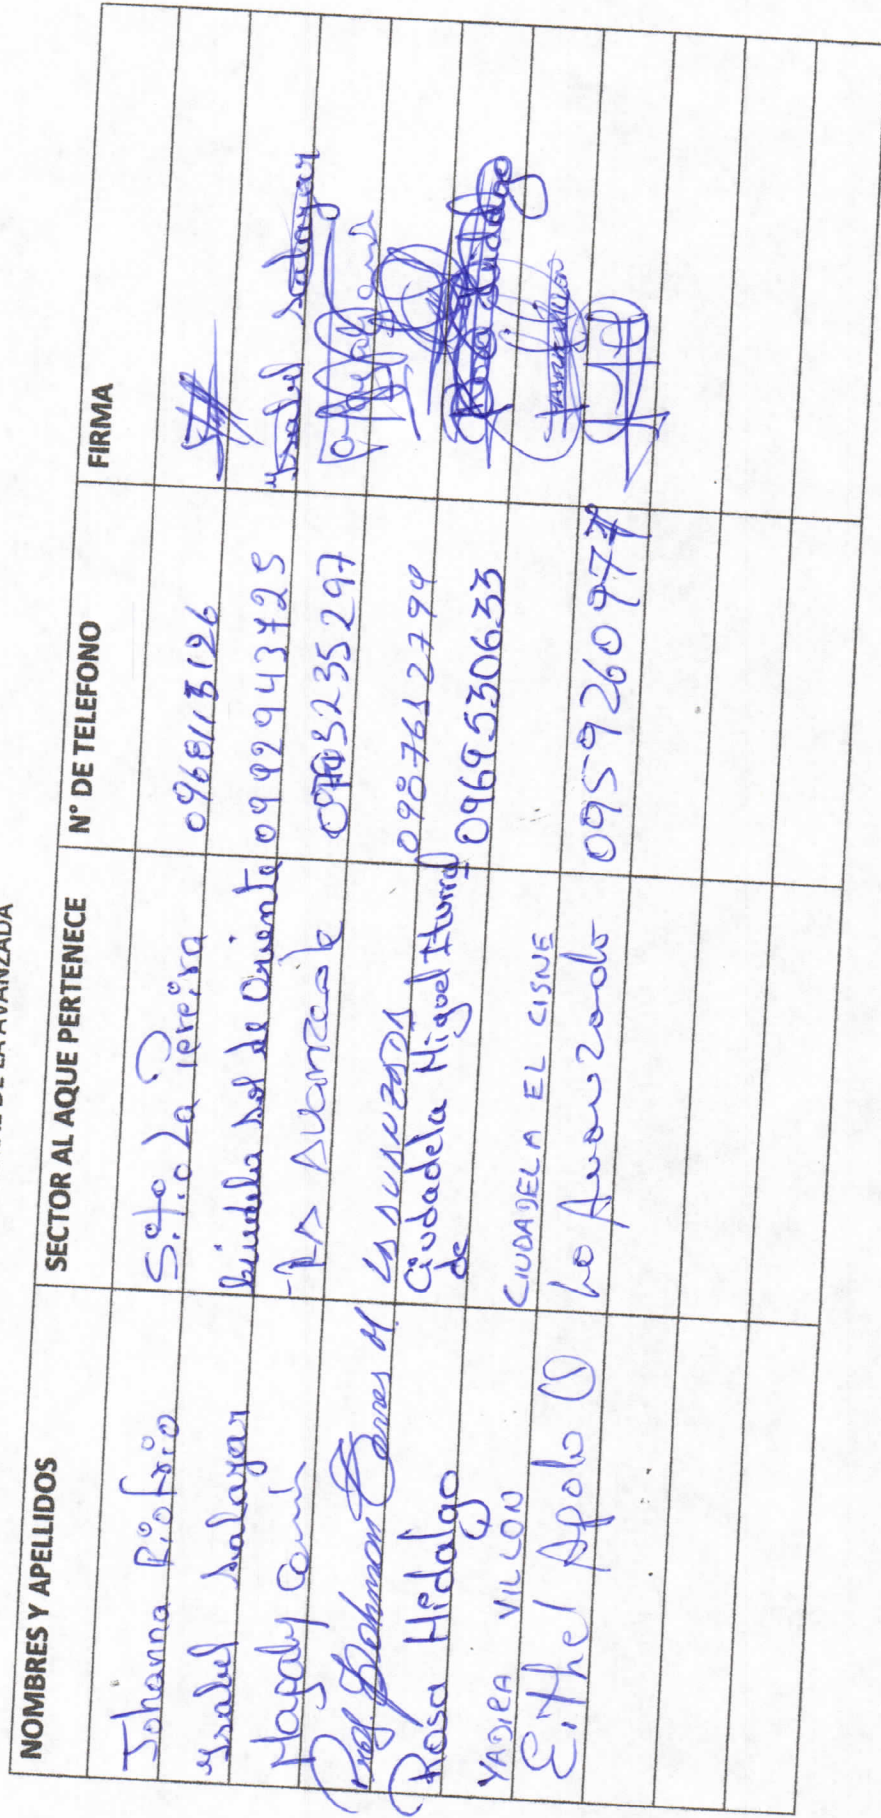 DE LA AVANZADA
NOMBRES Y APELLIDOS SECTOR AL AQUE PERTENECE N° DE TELEFONO FIRMA
Johanna Riofrio Sitio La Pereira 0968113126
Ysabel Salazar sol de Oriente 0992943725 Ysabel Salazar
Magaly Avanzada 235297
Prof Johnson Torres M LA AVANZADA 0987612794
Rosa Hidalgo Ciudadela Miguel Iturral 0969530633 Rosa Hidalgo
de
YADIRA VILLON CIUDADELA EL CISNE
Eithel Apolo O La Avanzada 0959260977